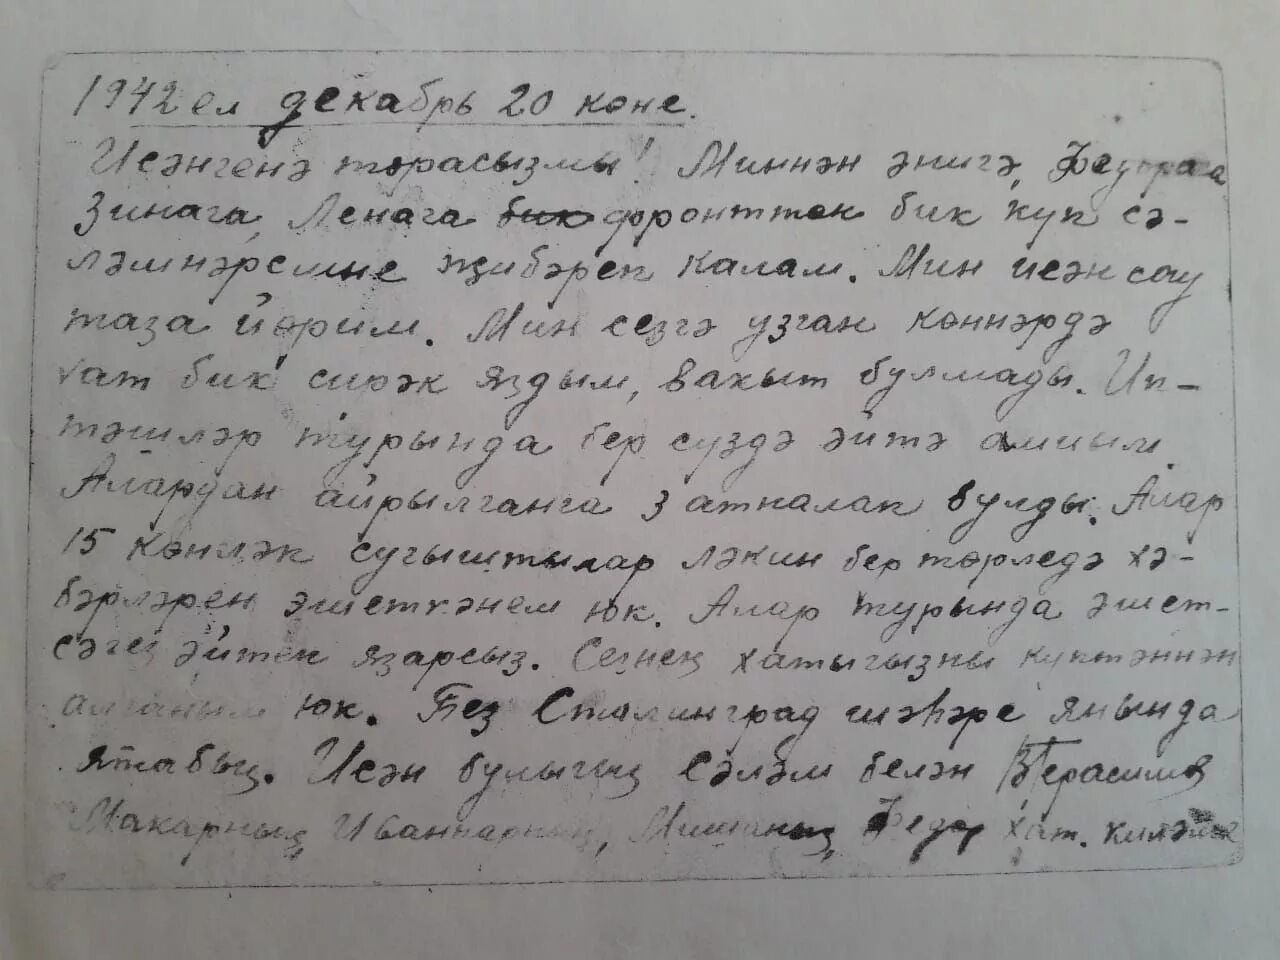 1942 ел декабрь 20 көне.
Исәнгенә торасызмы! Миннән әнигә,
Зинага, Ленага бик фронттан бик күп сә-
ләмнәремне җибәреп калам. Мин исән сау
таза йөрим. Мин сезгә узган көннәрдә
хат бик сирәк яздым, вакыт булмады. Ип-
тәшләр турында бер сүздә әйтә алмыйм.
Алардан айрылганга 3 атналап булды. Алар
15 көнләк сугыштылар ләкин бер төрледә хә-
бәрләрен эшеткәнем юк. Алар турында әшет-
сәгез әйтеп язарсыз. Сезнең хатыгызны күптәннән
алганым юк. Без Сталинград шәһәре янында
ятабыз. Исән булыгыз Сәләм белән Герасимов
Макарның, Иваннарның, Мишаның, хат. киләме